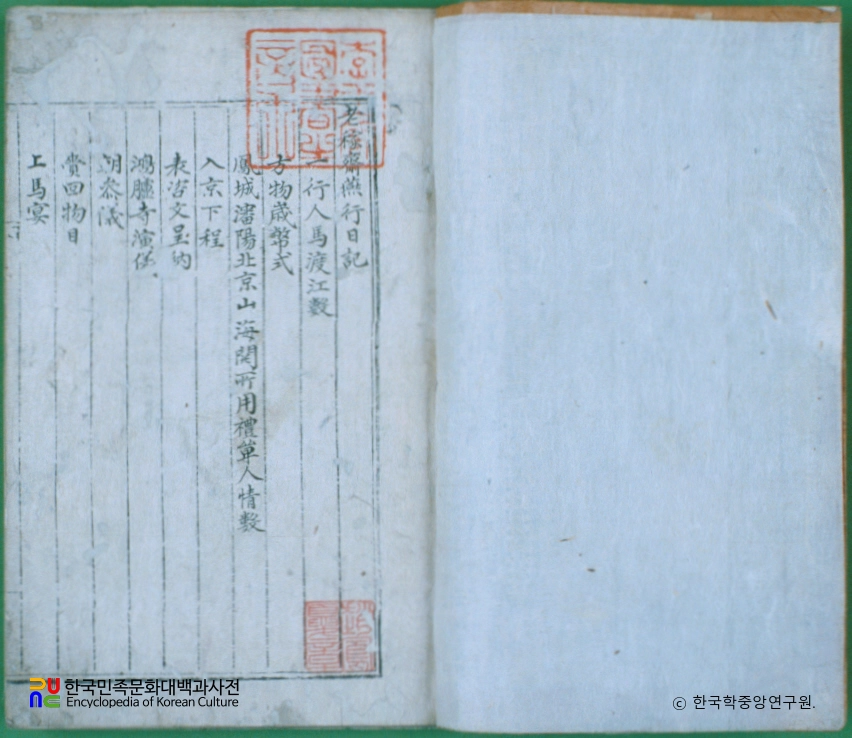 老稼齋燕行日記
一行人馬渡江數
方物歲幣式
鳳城瀋陽北京山海關所用禮單人情數
入京下程
表咨文呈納
鴻臚寺演儀
朝參儀
賞回物目
上馬宴
한국민족문화대백과사전
Encyclopedia of Korean Culture
© 한국학중앙연구원.